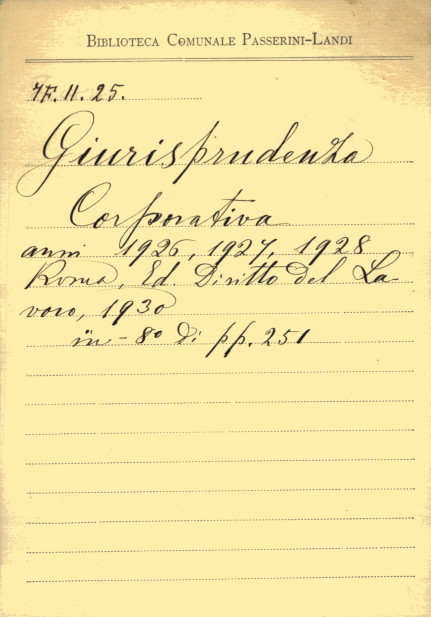 BIBLIOTECA COMUNALE PASSERINI-LANDI
7F. 11. 25.
Giurisprudenza
Corporativa
anni 1926, 1927, 1928
Roma, Ed. Diritto del La-
voro, 1930
in - 8º di pp. 251